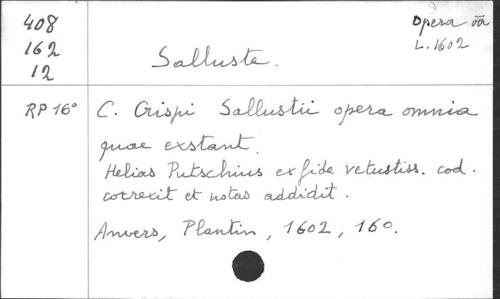 408
162
12
Opera oā
L. 1602
Salluste.
RP 16°
C. Crispi Sallustii opera omnia
quae exstant.
Helias Putschius ex fide vetustiss. cod.
correxit et notas addidit.
Anvers, Plantin, 1602, 16o.